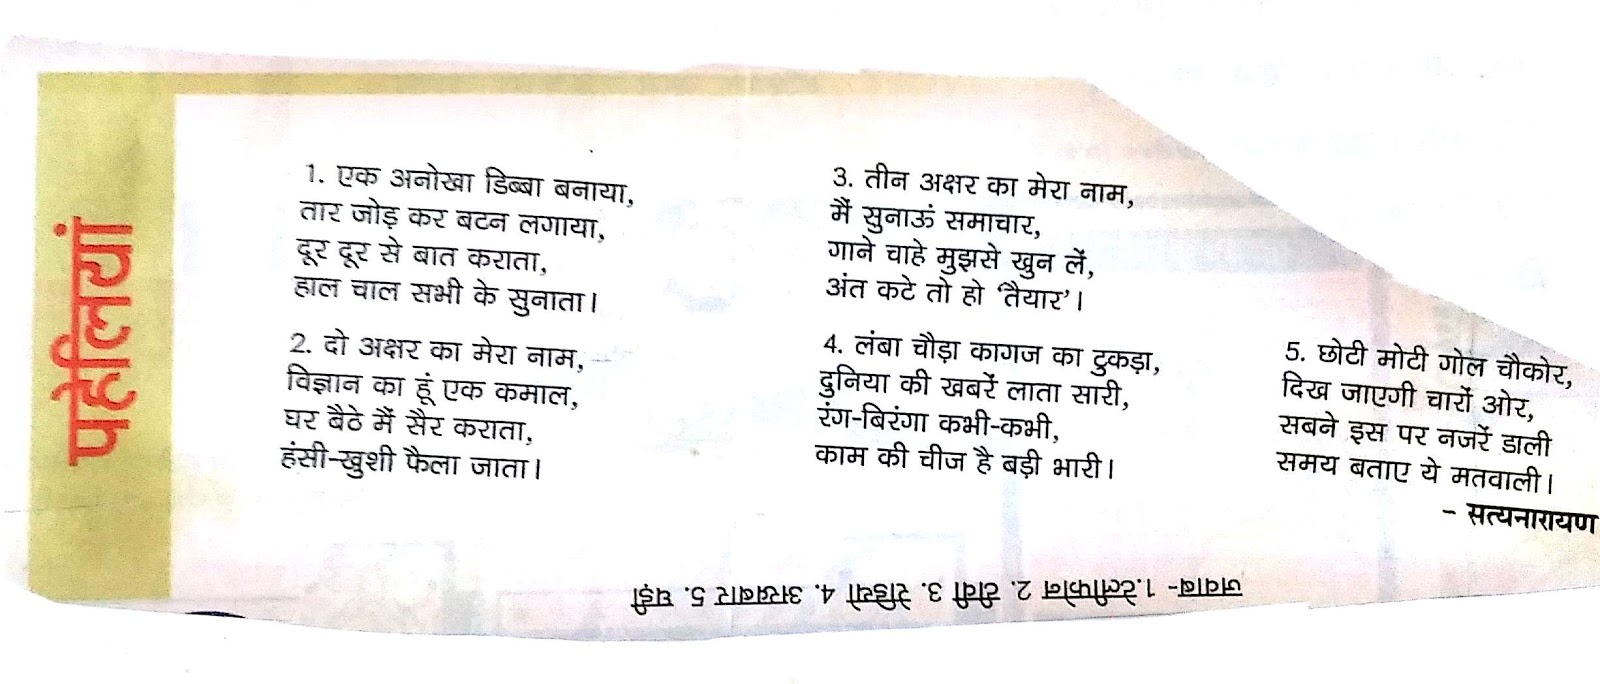 पहेलियां
1. एक अनोखा डिब्बा बनाया,
तार जोड़ कर बटन लगाया,
दूर दूर से बात कराता,
हाल चाल सभी के सुनाता।
2. दो अक्षर का मेरा नाम,
विज्ञान का हूं एक कमाल,
घर बैठे मैं सैर कराता,
हंसी-खुशी फैला जाता।
3. तीन अक्षर का मेरा नाम,
मैं सुनाऊं समाचार,
गाने चाहे मुझसे खुन लें,
अंत कटे तो हो ‘तैयार’।
4. लंबा चौड़ा कागज का टुकड़ा,
दुनिया की खबरें लाता सारी,
रंग-बिरंगा कभी-कभी,
काम की चीज है बड़ी भारी।
5. छोटी मोटी गोल चौकोर,
दिख जाएगी चारों ओर,
सबने इस पर नजरें डाली
समय बताए ये मतवाली।
- सत्यनारायण
जवाब- 1. टेलीफोन 2. टीवी 3. रेडियो 4. अखबार 5. घड़ी